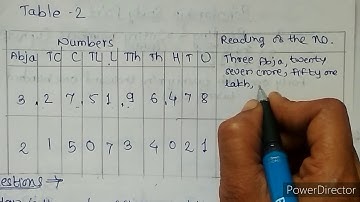 Table-2
Numbers Reading of the no.
Abja TC C TL L TTh Th H T O
3 . 2 7 . 5 1 . 9 6 . 4 7 8
Three Abja, twenty
seven crore, fifty one
lakh,
2 1 5 0 7 3 4 0 2 1
estions →
PowerDirector